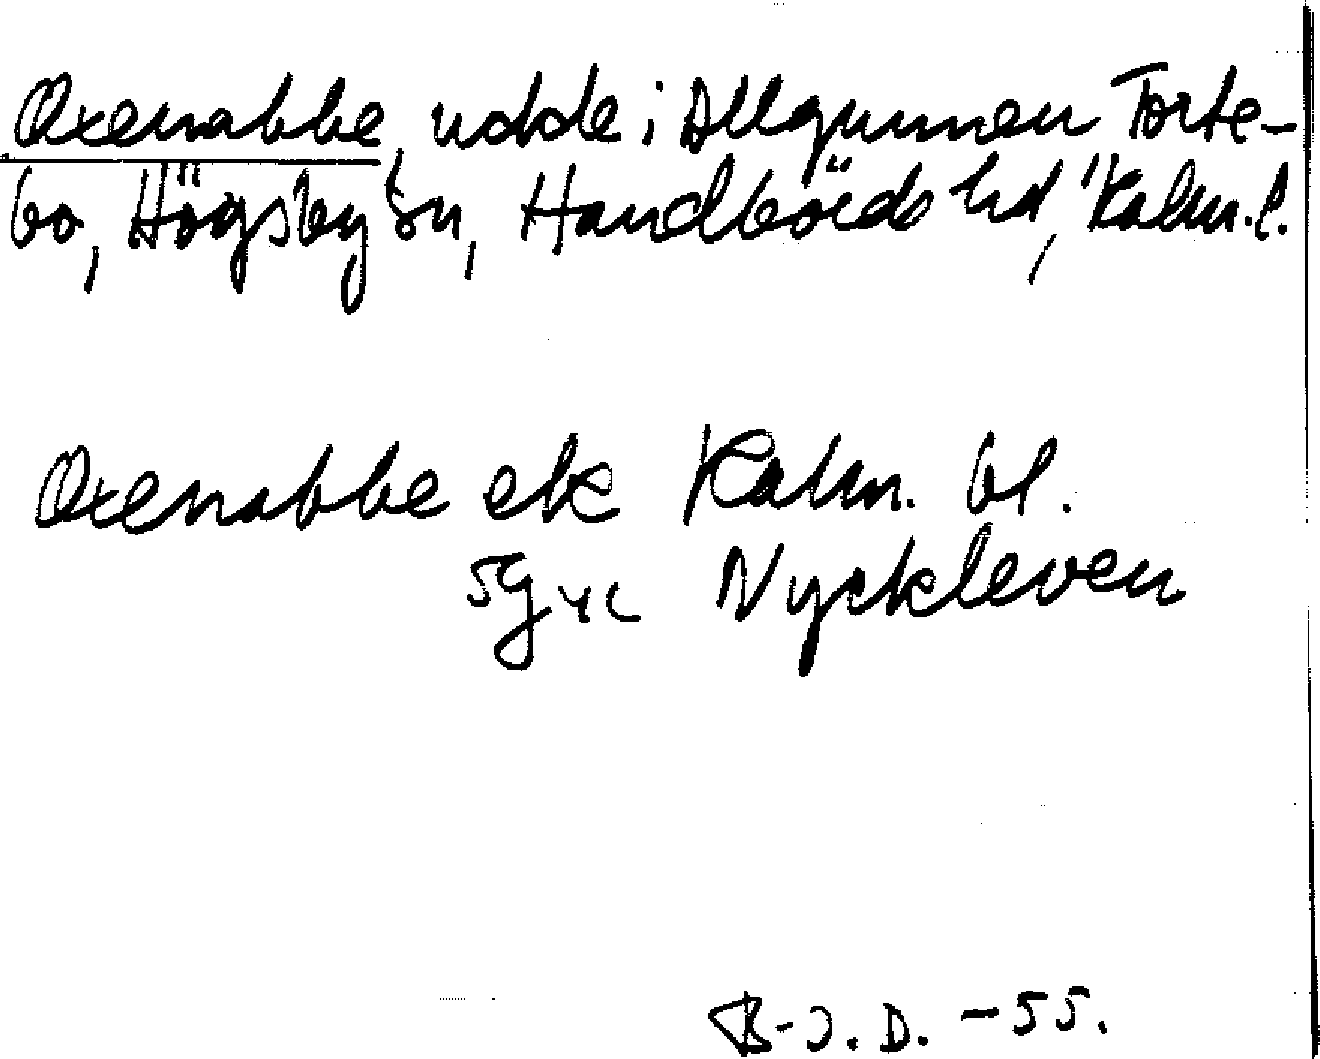 Oxenabbe, udde i Allgunnen Torte-
bo, Högsby sn, Handbörds hd, Kalm. l.
Oxenabbe ek Kalm. bl.
5g Nyckleven
B-J.D. -55.